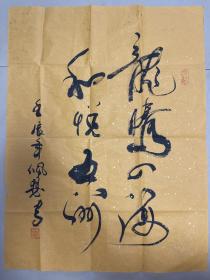 龍騰四海
和悦五洲
壬辰年佩慧書